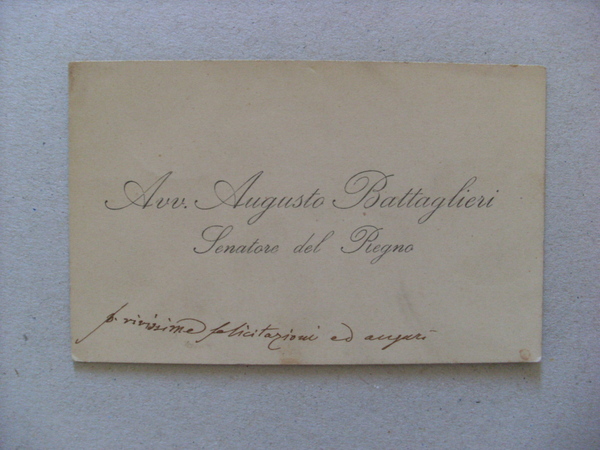 Avv. Augusto Battaglieri
Senatore del Regno
p. vivissime felicitazioni ed auguri